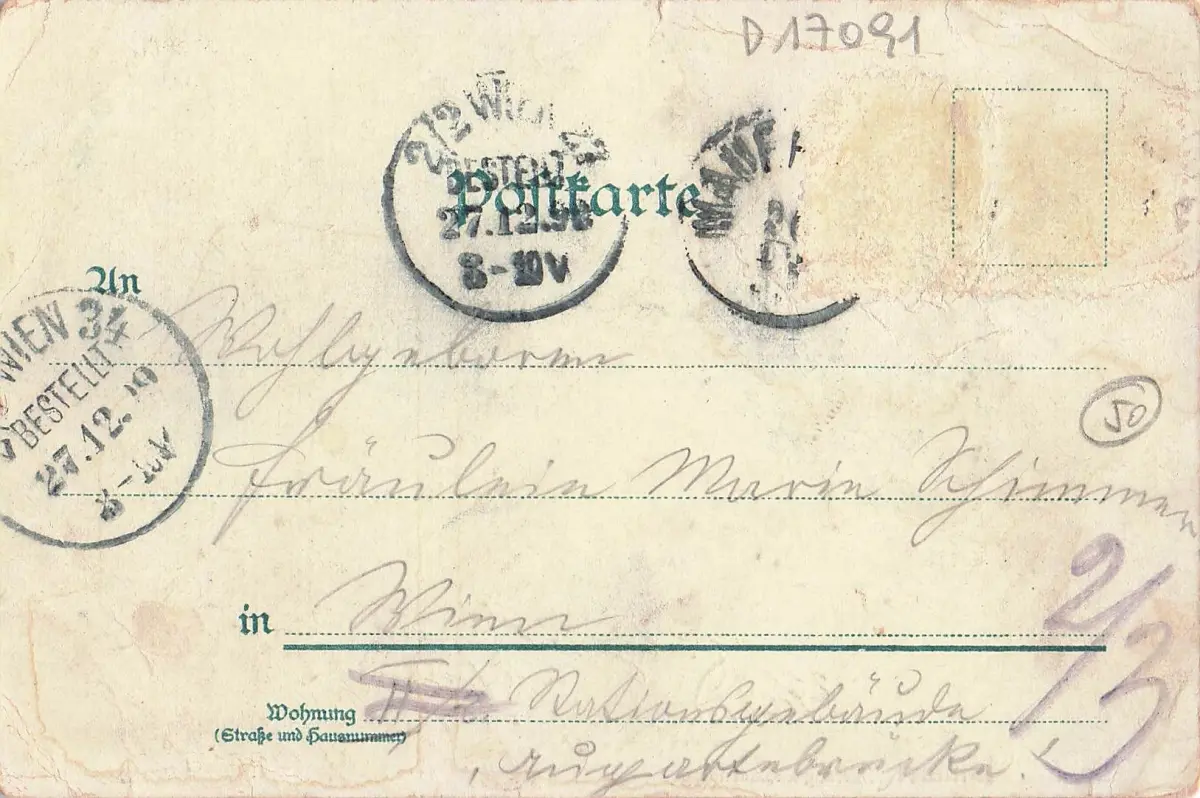 D 17091
2/2 Wien
BESTELLT
27.12.98
8-10V
Postkarte
An
WIEN 34
BESTELLT
27.12.
8-10V
Wohlgeboren
50
Fräulein Marie Schimmer
in Wien
2/3
Wohnung II/2. Stationsgebäude
(Straße und Hausnummer)
Augartebrücke.